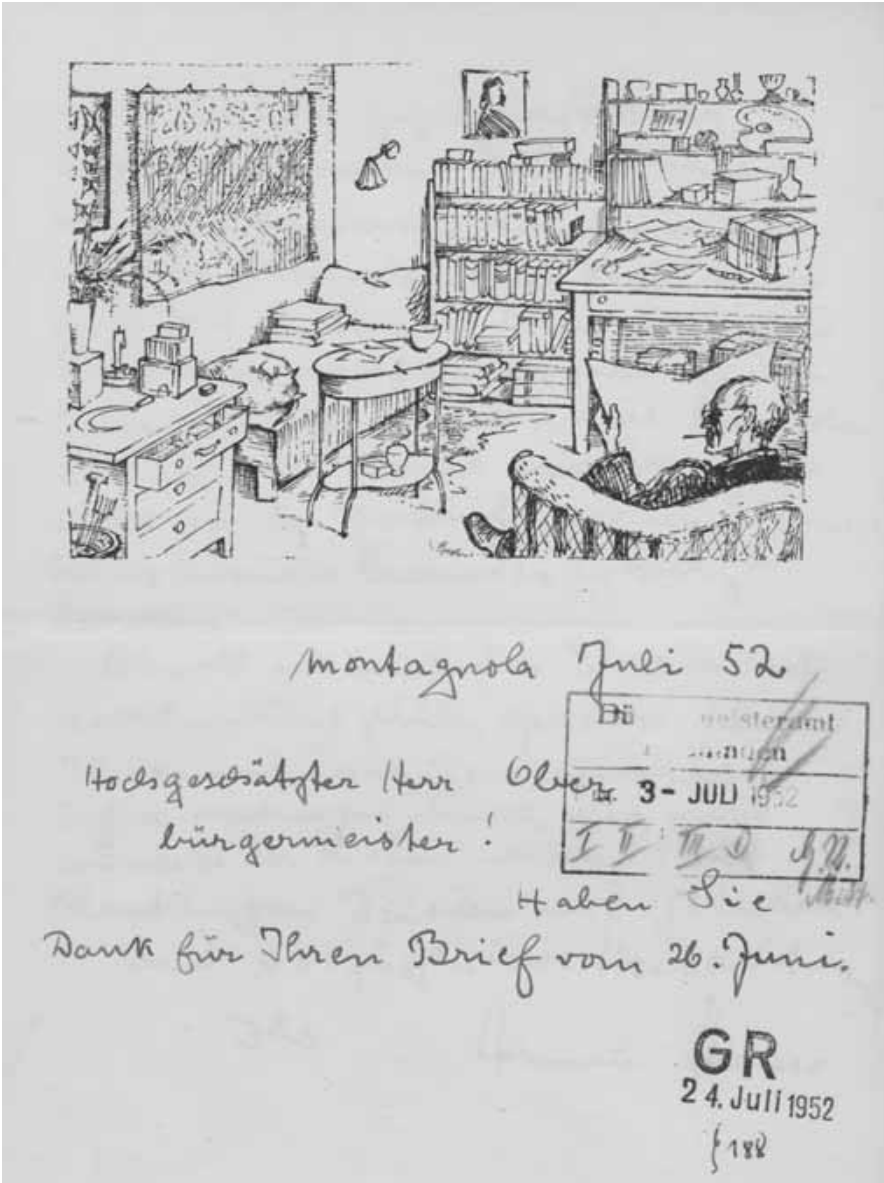 Montagnola Juli 52
Bü meisteramt
ingen
3 - JULI 1952
Hochgeschätzter Herr Ober
bürgermeister!
I II III
Haben Sie
Dank für Ihren Brief vom 26. Juni.
GR
24. Juli 1952
§ 188